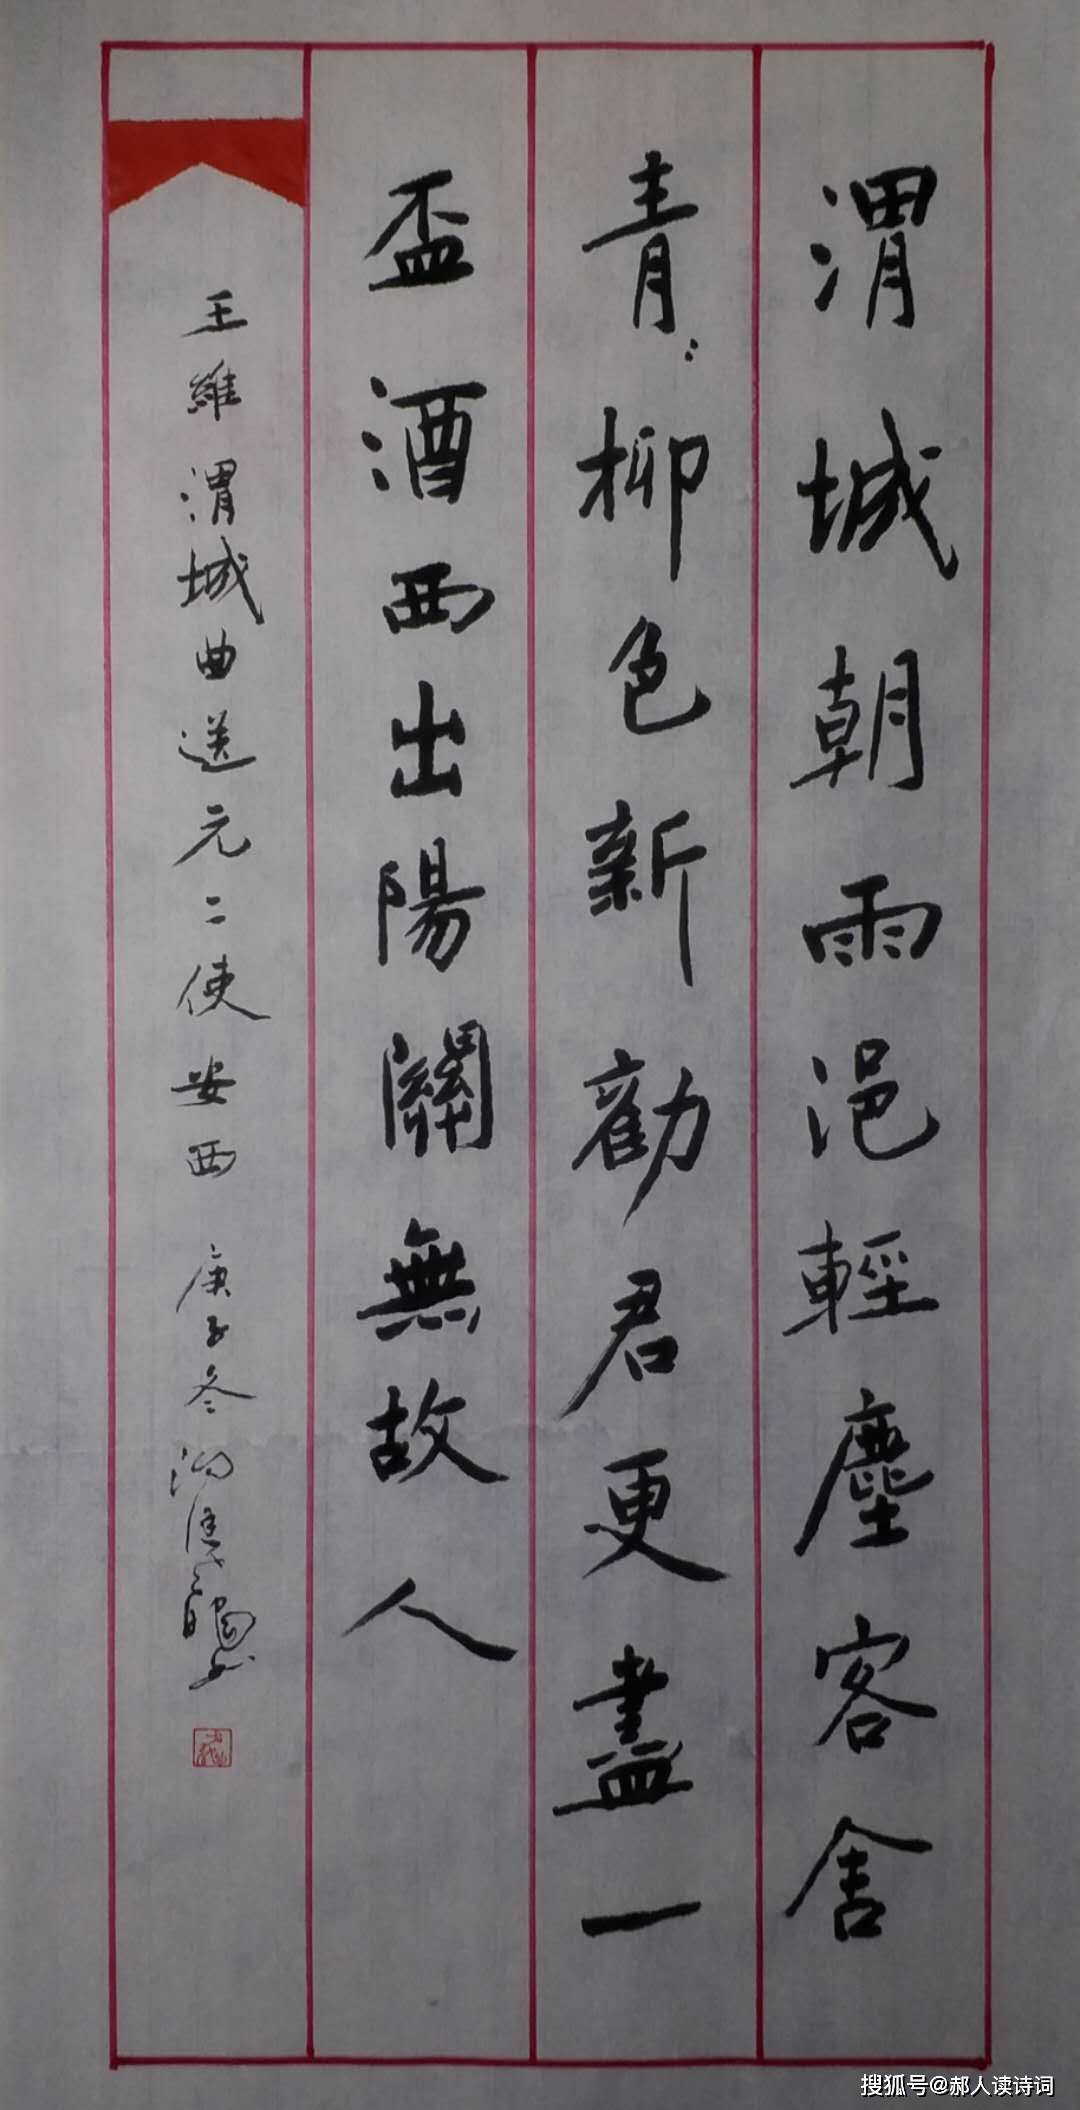 渭城朝雨浥輕塵客舍
青〻柳色新勸君更盡一
盃酒西出陽關無故人
王維渭城曲送元二使安西 庚子冬
搜狐号@郝人读诗词